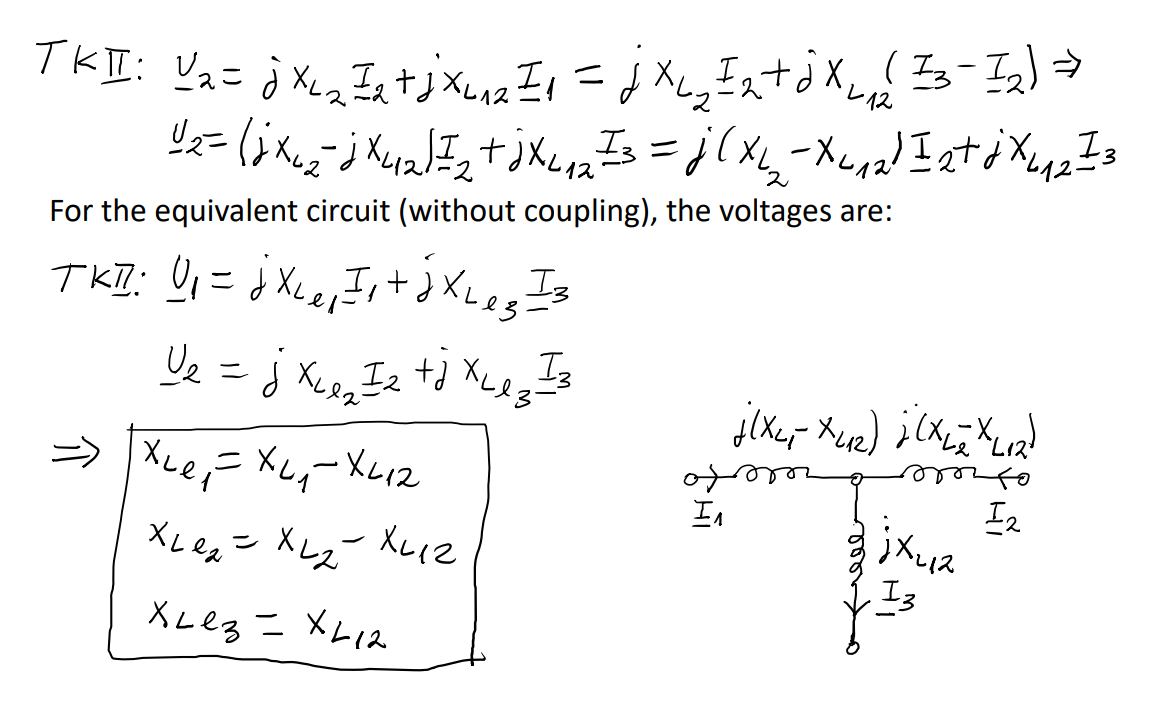 TKII: U₂ = jX_L₂ I₂ + jX_L12 I₁ = jX_L₂ I₂ + jX_L12 (I₃ − I₂) ⇒
U₂ = (jX_L₂ − jX_L12) I₂ + jX_L12 I₃ = j(X_L₂ − X_L12) I₂ + jX_L12 I₃
For the equivalent circuit (without coupling), the voltages are:
TKII: U₁ = jX_Le₁ I₁ + jX_Le₃ I₃
U₂ = jX_Le₂ I₂ + jX_Le₃ I₃
⇒ X_Le₁ = X_L₁ − X_L12
X_Le₂ = X_L₂ − X_L12
X_Le₃ = X_L12
j(X_L₁ − X_L12) j(X_L₂ − X_L12)
I₁ I₂
jX_L12
I₃